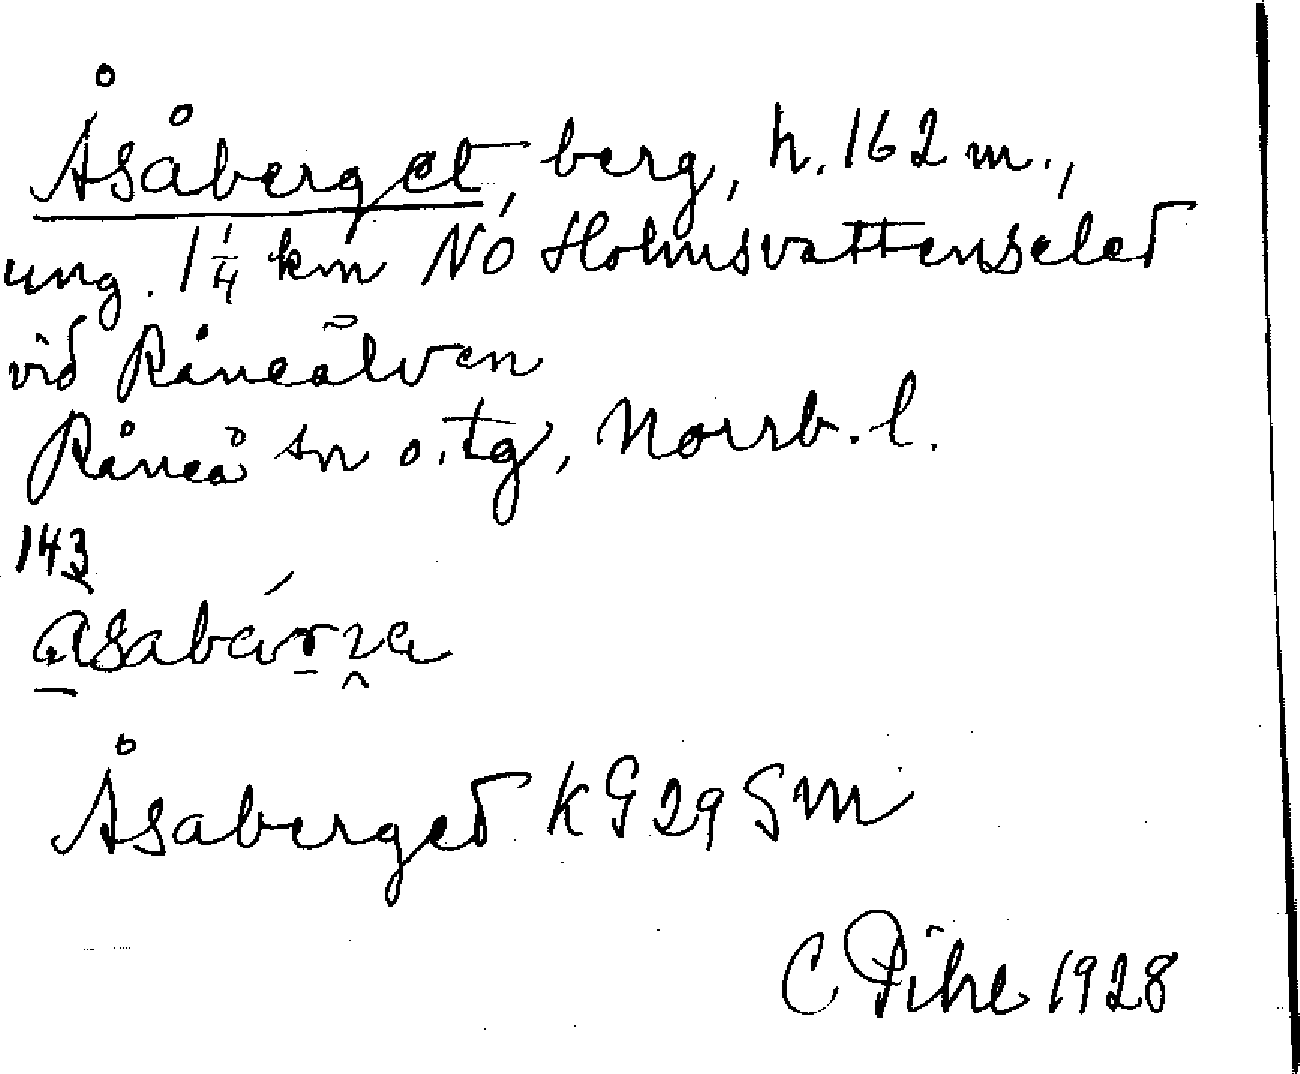 Åsåberget, berg, h. 162 m.,
ung. 1 1/4 km NÖ Holmsvattenselet
vid Råneälven
Råneå sn o. tg, Norrb. l.
143
Åsaberget KG 29 Sm
C Pihl 1928